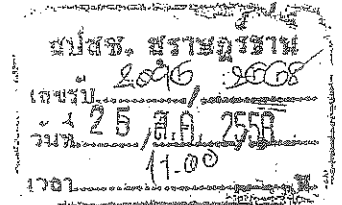 สปสช. สุราษฎร์ธานี
เลขรับ 2046 / 2568
วันที่ 25 / ส.ค. 2568
เวลา 11.00 น.